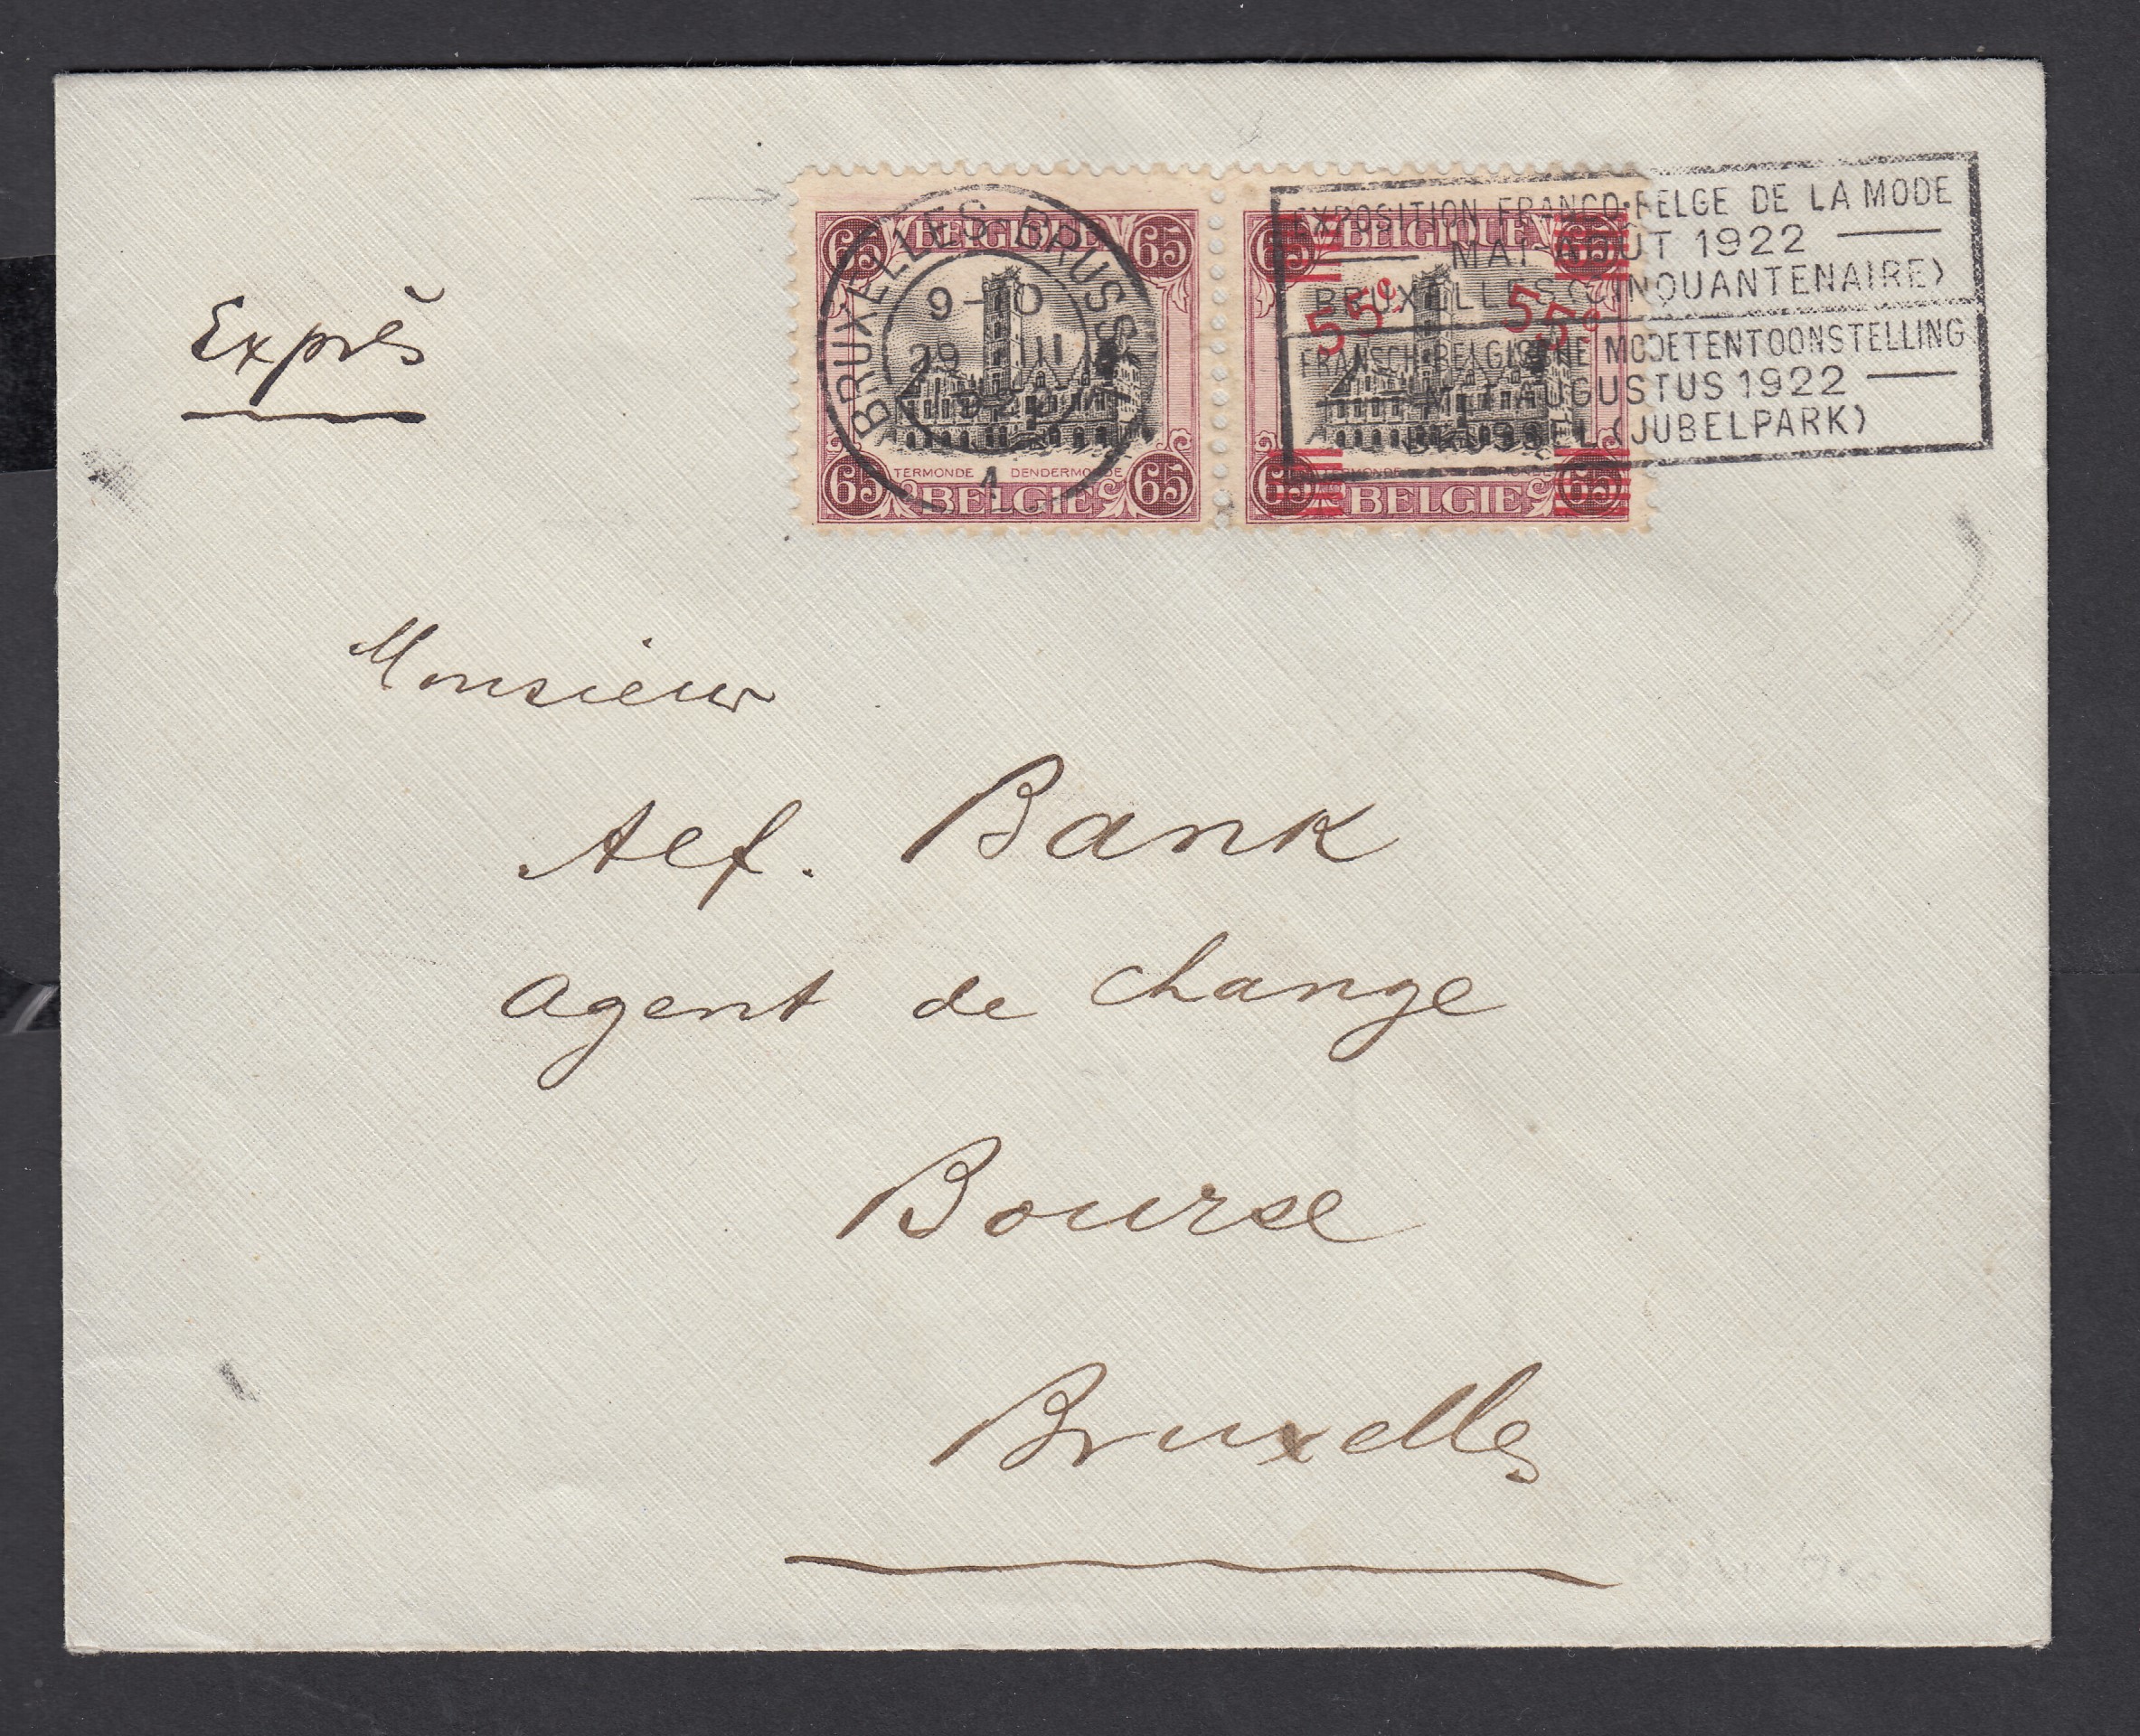 Exprès
BELGIQUE
65 65
TERMONDE DENDERMONDE
65 BELGIE 65
BRUXELLES-BRUSSEL
9-10
29 III
1
65 BELGIQUE 65
55c 55c
TERMONDE
65 BELGIE 65
EXPOSITION FRANCO-BELGE DE LA MODE
MAI-AOUT 1922
BRUXELLES (CINQUANTENAIRE)
FRANSCH-BELGISCHE MODETENTOONSTELLING
MEI-AUGUSTUS 1922
BRUSSEL (JUBELPARK)
Monsieur
Alf. Bank
Agent de Change
Bourse
Bruxelles